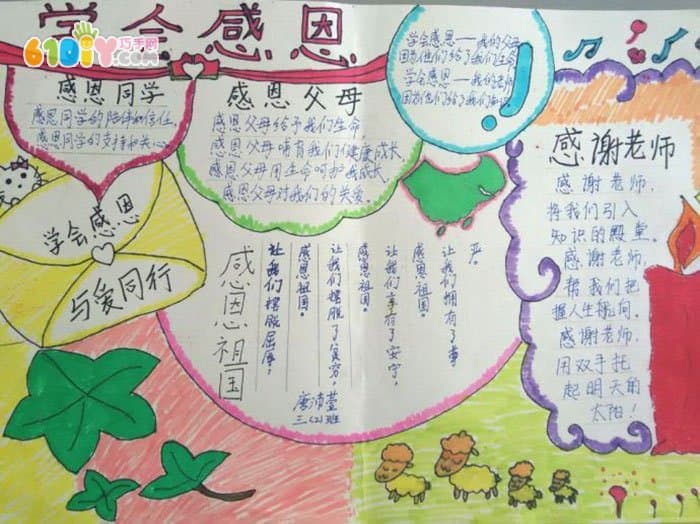 学会感恩
61DIY巧手网
.com
感恩同学
感恩同学的陪伴和信任
感恩同学的支持和关心
感恩父母
感恩父母给予我们生命,
感恩父母哺育我们健康成长,
感恩父母用生命呵护我成长,
感恩父母对我们的关爱。
学会感恩——我的父母
因为他们给了我们生命
学会感恩——我的老师
因为他们给了我们知识
学会感恩
与爱同行
感恩祖国
让我们摆脱屈辱。
感恩祖国。
让我们摆脱了贫穷,
感恩祖国。
让我们享有了安宁,
感恩祖国。
让我们拥有了尊
严。
唐沛萱
三(2)班
感谢老师
感谢老师,
将我们引入
知识的殿堂。
感谢老师,
帮我们把
握人生航向。
感谢老师,
用双手托
起明天的
太阳!